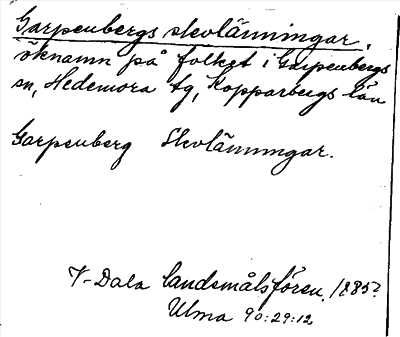 Garpenbergs skolänningar,
öknamn på folket i Garpenbergs
sn, Hedemora tg, Kopparbergs län
Garpenberg Skolänningar.
V-Dala landsmålsfören. 1885?
Ulma 90:29:12